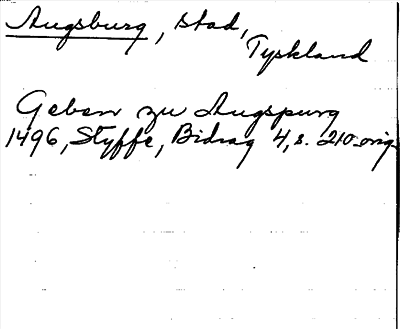 Augsburg, stad,
Tyskland
Geben zu Augspurg
1496, Styffe, Bidrag 4, s. 210. orig.